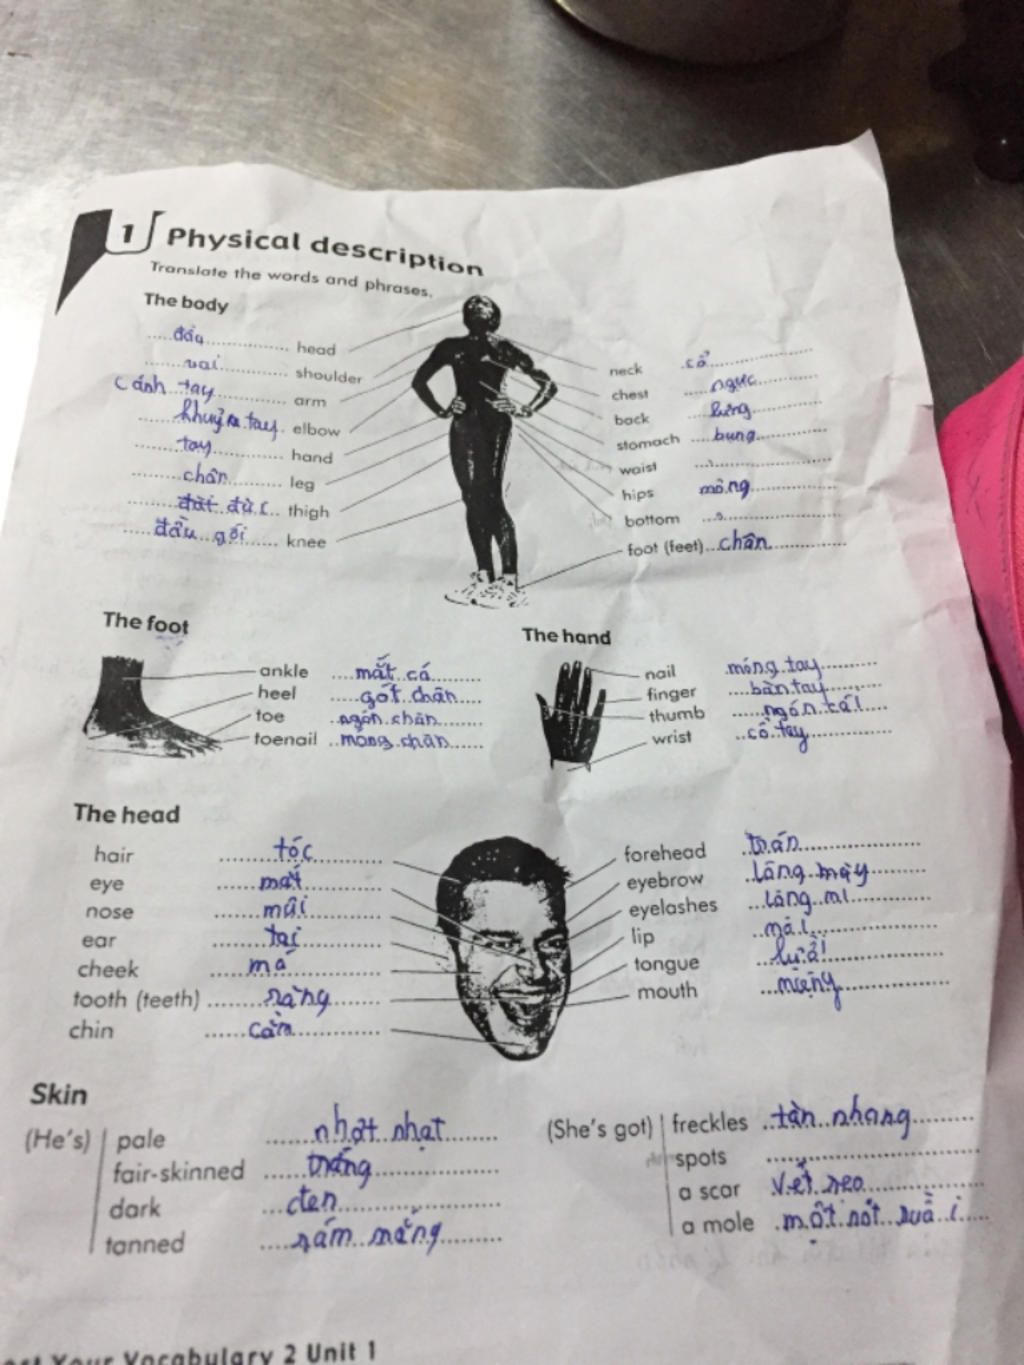 1 Physical description
Translate the words and phrases.
The body
đầu head
vai shoulder
cánh tay arm
khuỷu tay elbow
tay hand
chân leg
đùi thigh
đầu gối knee
neck cổ
chest ngực
back lưng
stomach bụng
waist
hips mông
bottom
foot (feet) chân
The foot
ankle mắt cá
heel gót chân
toe ngón chân
toenail móng chân
The hand
nail móng tay
finger bàn tay
thumb ngón cái
wrist cổ tay
The head
hair tóc
eye mắt
nose mũi
ear tai
cheek má
tooth (teeth) răng
chin cằm
forehead trán
eyebrow lông mày
eyelashes lông mi
lip môi
tongue lưỡi
mouth miệng
Skin
(He's) pale nhợt nhạt
fair-skinned trắng
dark đen
tanned rám nắng
(She's got) freckles tàn nhang
spots
a scar vết sẹo
a mole một nốt ruồi
Your Vocabulary 2 Unit 1